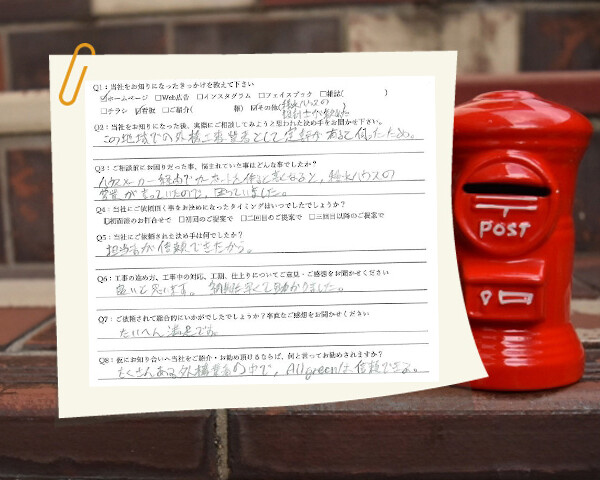 Q1：当社をお知りになったきっかけを教えて下さい
☑ホームページ □Web広告 □インスタグラム □フェイスブック □雑誌( )
□チラシ ☑看板 □ご紹介( 様) ☑その他(積水ハウスの
Q2：当社をお知りになった後、実際にご相談してみようと思われた決め手をお聞かせ下さい。
この地域での外構工事業者として定評があると伺ったため。
Q3：ご相談前にお困りだった事、悩まれていた事はどんな事でしたか？
ハウスメーカー経由でカーポートを作ると高くなると、積水ハウスの
営業が言っていたので、困っていました。
Q4：当社にご依頼頂く事をお決めになったタイミングはいつでしたでしょうか？
初回の□ご提案で □二回目のご提案で □三回目以降のご提案で
Q5：当社にご依頼された決め手は何でしたか？
担当者が信頼できたから。
Q6：工事の進め方、工事中の対応、工期、仕上りについてご意見・ご感想をお聞かせください
良いと思います。 納期も早くて助かりました。
Q7：ご依頼されて総合的にいかがでしたでしょうか？率直なご感想をお聞かせください
たいへん満足です。
Q8：仮にお知り合いへ当社をご紹介・お勧め頂けるならば、何と言ってお勧めされますか？
たくさんある外構業者の中で、Allgreenは信頼できる。
POST